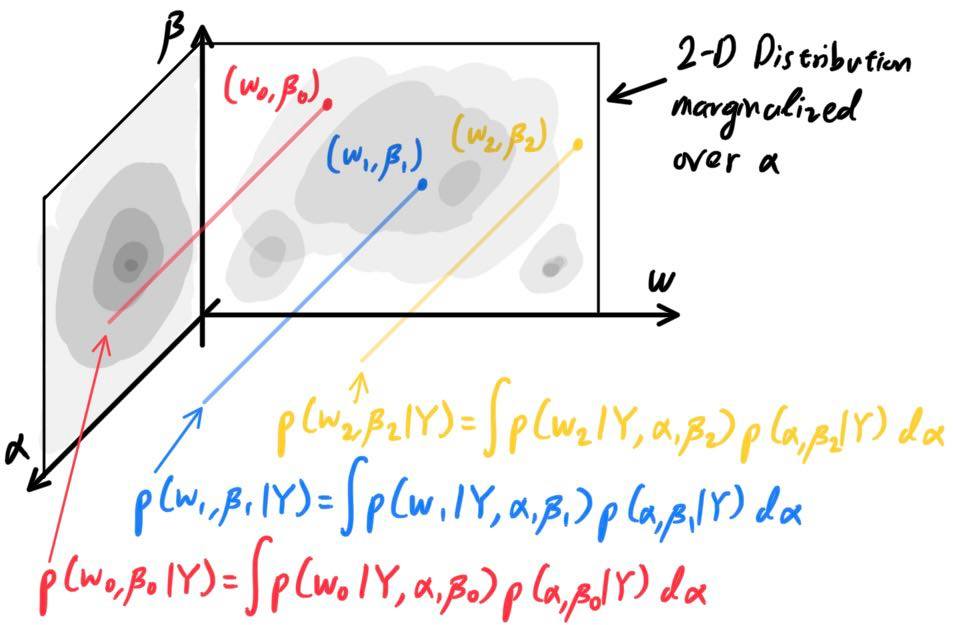 β
(w₀, β₀)
(w₁, β₁)
(w₂, β₂)
2-D Distribution
marginalized
over α
w
α
p(w₂,β₂|Y) = ∫ p(w₂|Y, α, β₂) p(α, β₂|Y) dα
p(w₁,β₁|Y) = ∫ p(w₁|Y, α, β₁) p(α, β₁|Y) dα
p(w₀,β₀|Y) = ∫ p(w₀|Y, α, β₀) p(α, β₀|Y) dα